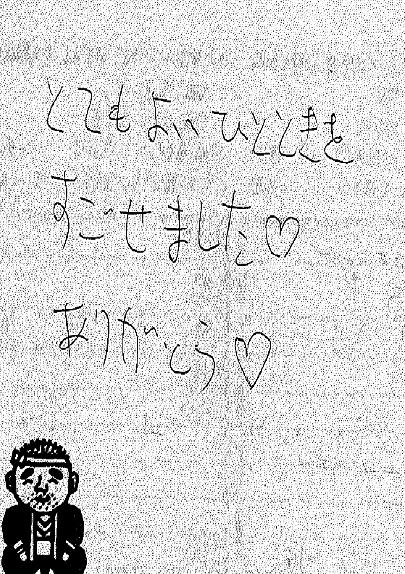 とてもよいひとときを
すごせました♡
ありがとう♡